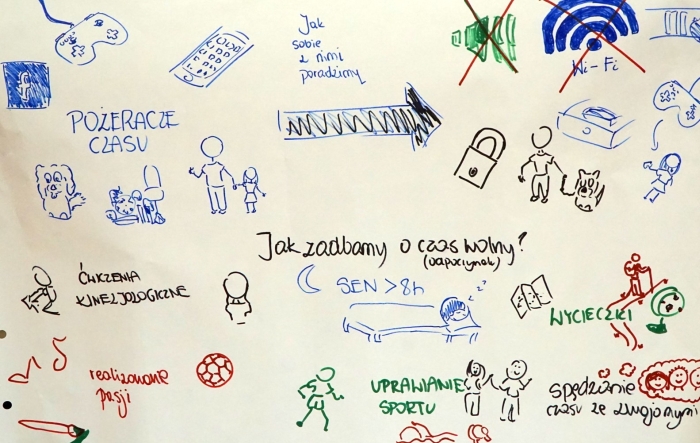 f
Jak
sobie
z nimi
poradzimy
Wi-Fi
POŻERACZE
CZASU
Jak zadbamy o czas wolny?
(odpoczynek)
ĆWICZENIA
KINEZJOLOGICZNE
SEN > 8h
z z z
WYCIECZKI
realizowanie
pasji
UPRAWIANIE
SPORTU
spędzanie
czasu ze znajomymi